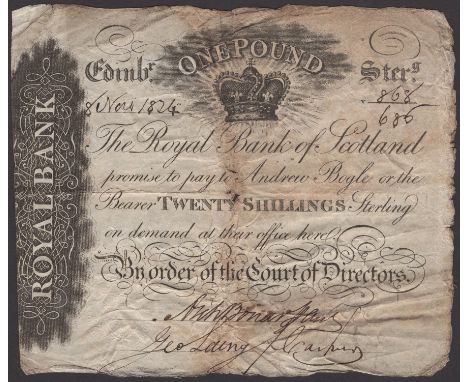 ROYAL BANK
ONE POUND
Edinbr. Sterg
8 Novr 1824 868
686
The Royal Bank of Scotland
promise to pay to Andrew Bogle or the
Bearer TWENTY SHILLINGS Sterling
on demand at their office here
By order of the Court of Directors.
Geo Laing